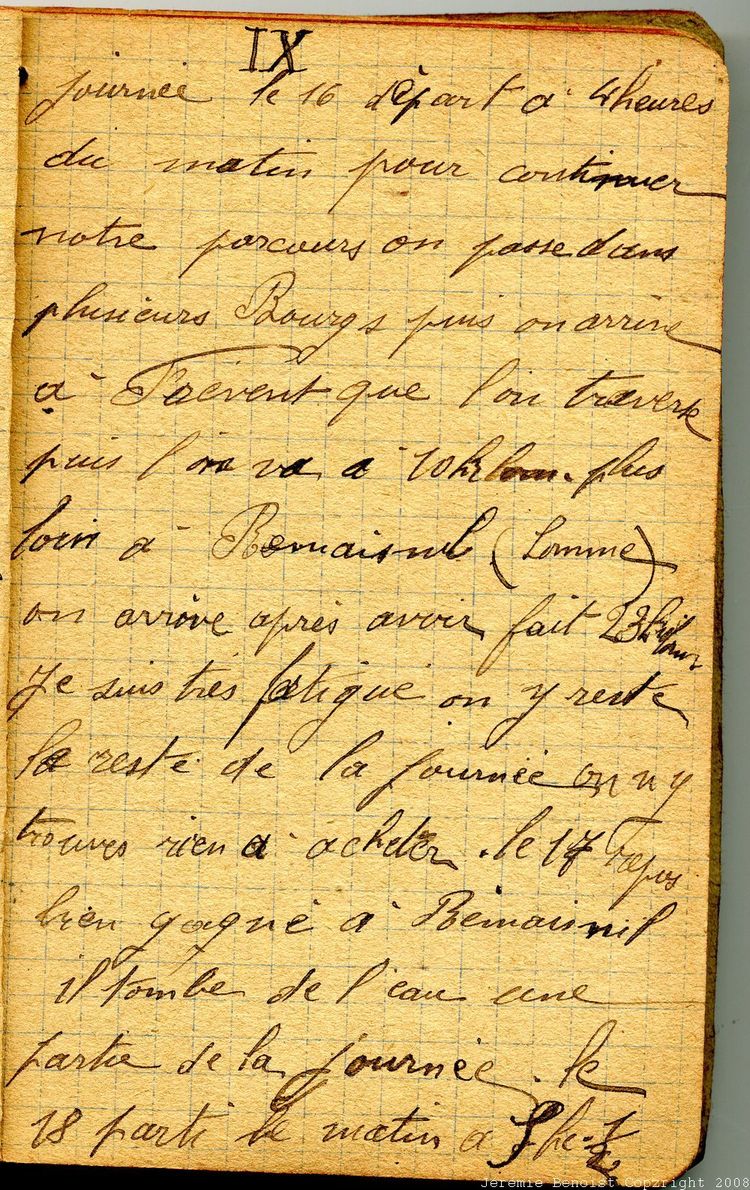 IX
journée le 16 départ à 4 heures
du matin pour continuer
notre parcours on passe dans
plusieurs Bourgs puis on arrive
à Frévent que l'on traverse
puis l'on va à 10 kilom. plus
loin à Remaisnil (Somme)
on arrive après avoir fait 23 kil
Je suis très fatigué on y reste
le reste de la journée on n y
trouves rien à acheter. le 17 repos
bien gagné à Remaisnil
il tombe de l'eau une
partie de la journée. le
18 parti le matin à 5 h. 1/2
Jeremie Benoist Copzright 2008